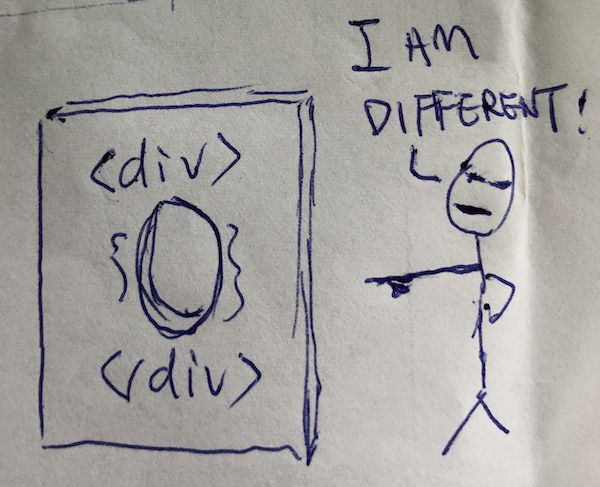 I AM
DIFFERENT!
<div>
{0}
</div>